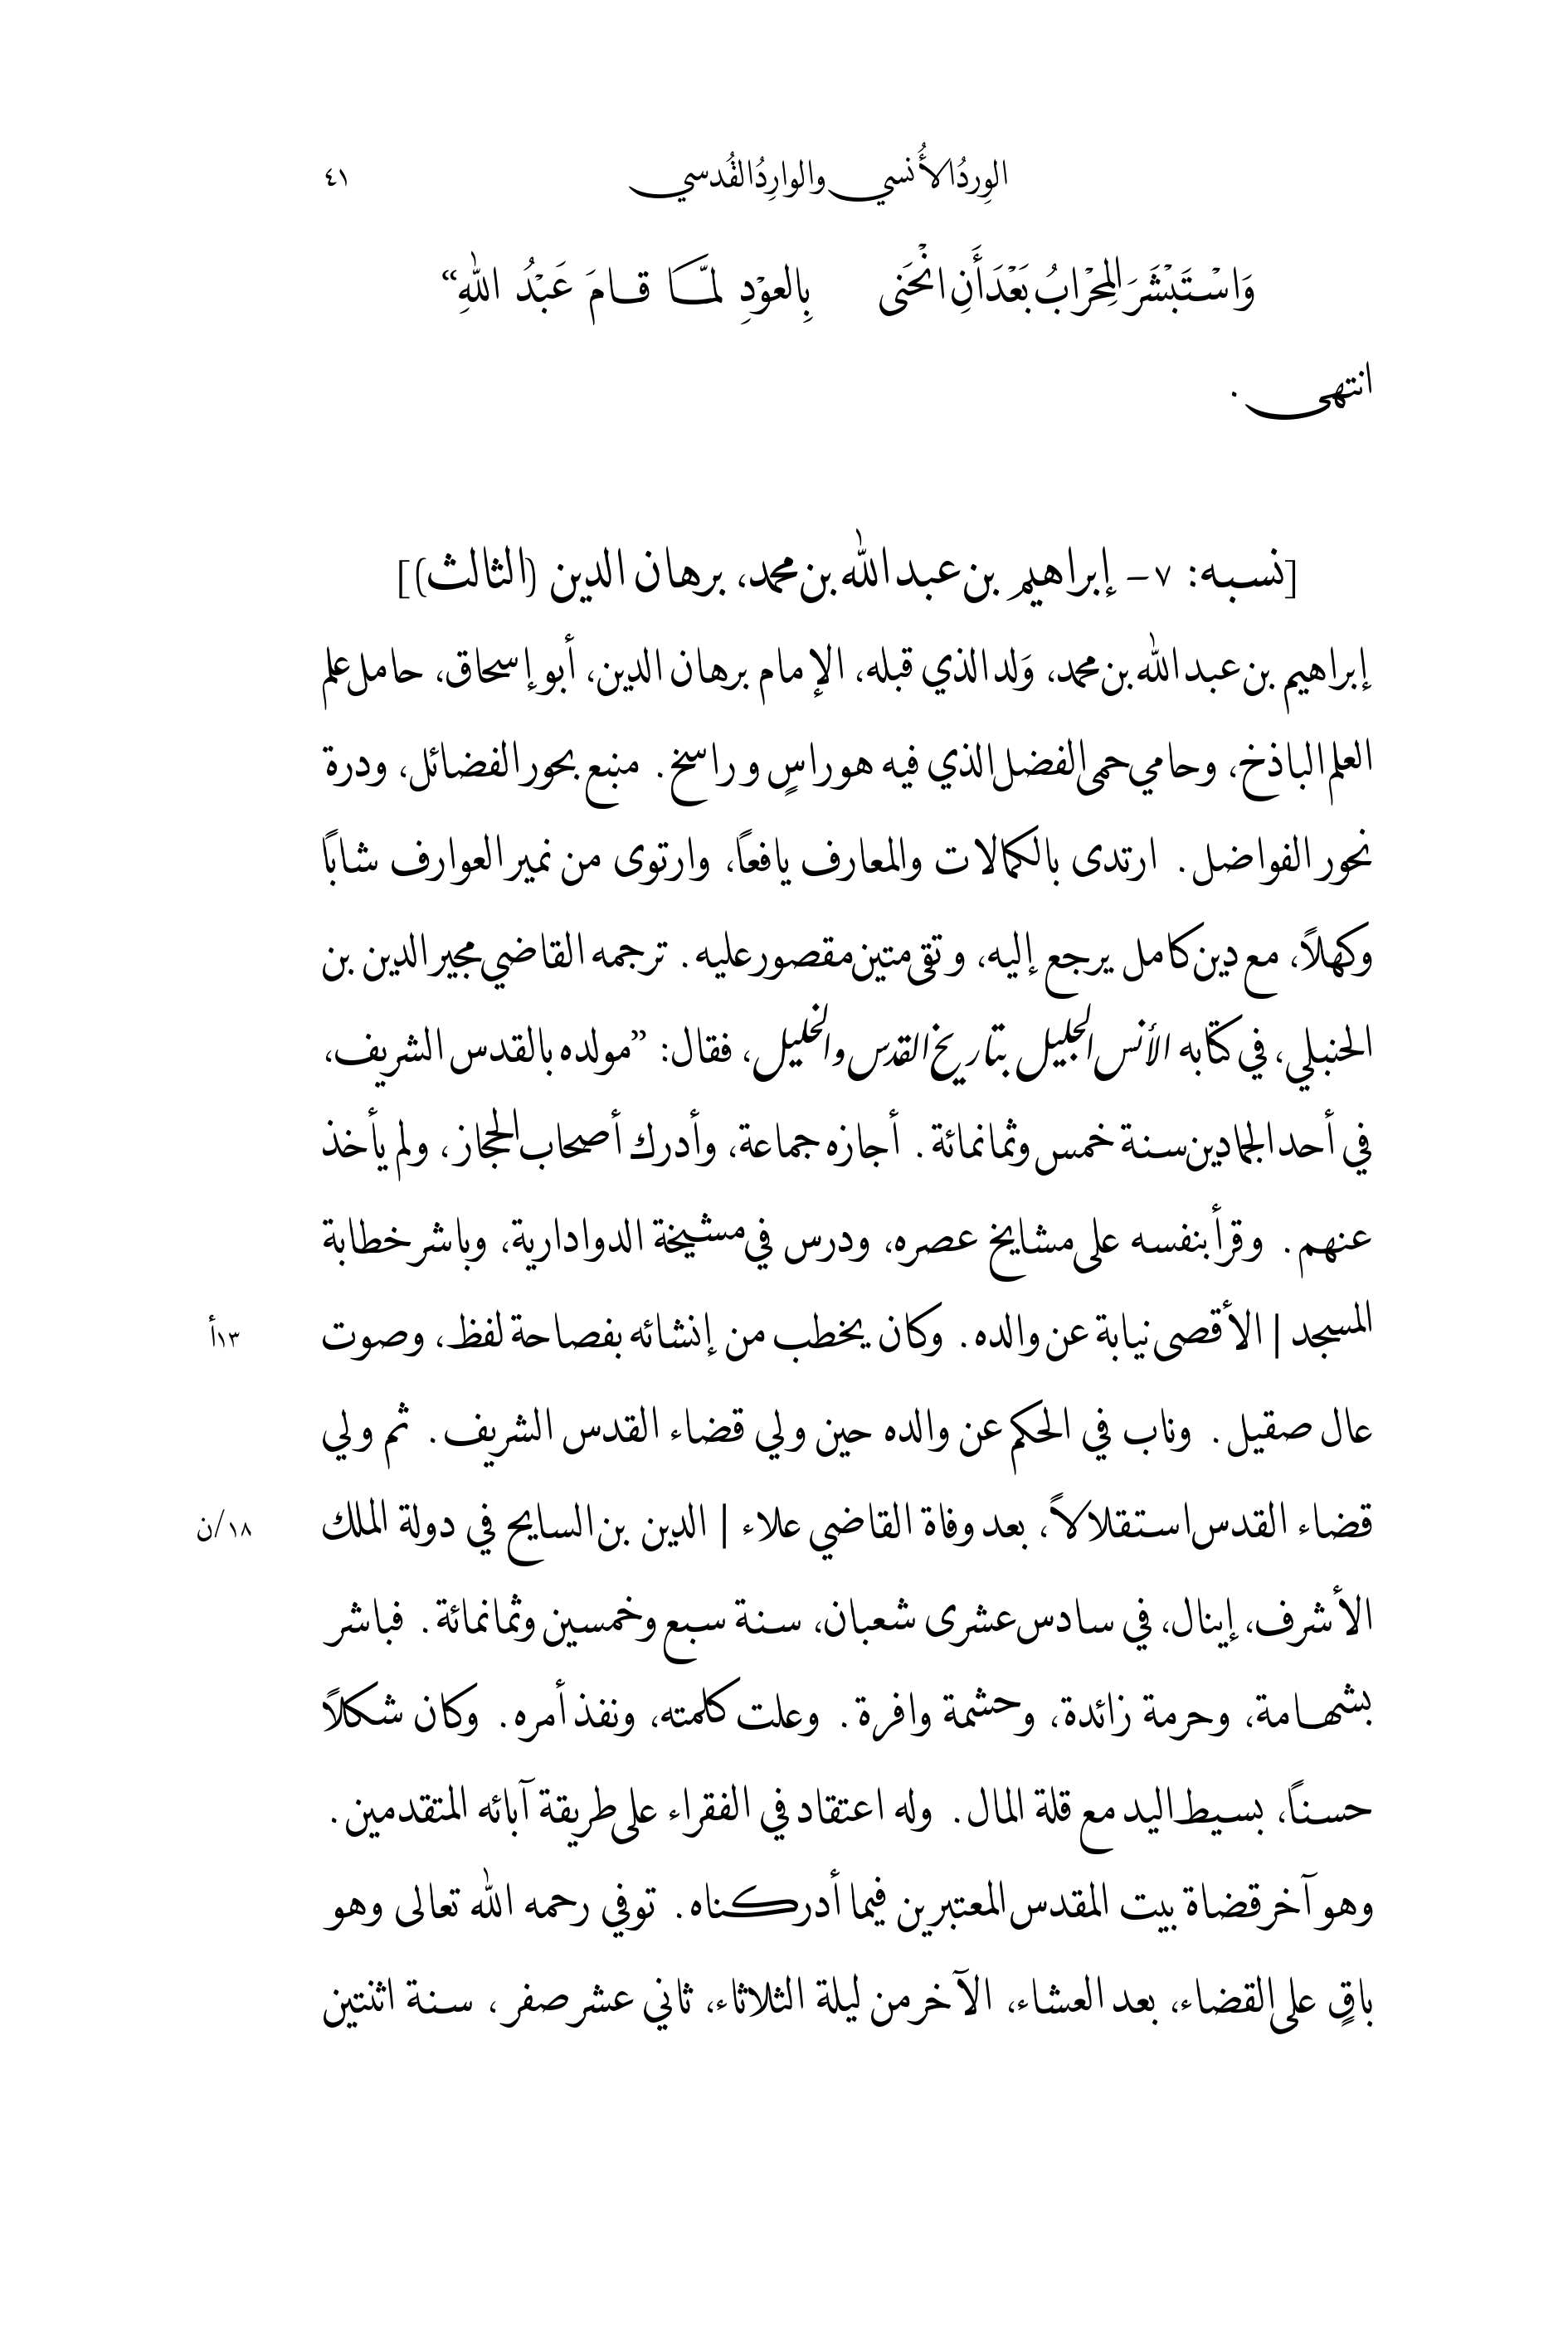 الوِردُ الأُنسي والوارِدُ القُدسي ٤١
وَاسْتَبْشَرَ المِحْرَابُ بَعْدَ أَنِ انْحَنى بِالعوْدِ لمّـــا قــامَ عَبْدُ اللهِ“
انتهى.
[نسبه: ٧- إبراهيم بن عبد الله بن محمد، برهان الدين (الثالث)]
إبراهيم بن عبد الله بن محمد، وَلد الذي قبله، الإمام برهان الدين، أبو إسحاق، حامل علم
العلم الباذخ، وحامي حمى الفضل الذي فيه هو راسٍ و راسخ. منبع بحور الفضائل، ودرة
نحور الفواضل. ارتدى بالكمالات والمعارف يافعاً، وارتوى من نمير العوارف شاباً
وكهلاً، مع دين كامل يرجع إليه، وتقى متين مقصور عليه. ترجمه القاضي مجير الدين بن
الحنبلي، في كتابه الأنس الجليل بتاريخ القدس والخليل، فقال: ”مولده بالقدس الشريف،
في أحد الجمادين سنة خمس وثمانمائة. أجازه جماعة، وأدرك أصحاب الحجاز، ولم يأخذ
عنهم. وقرأ بنفسه على مشايخ عصره، ودرس في مشيخة الدوادارية، وباشر خطابة
المسجد | الأقصى نيابة عن والده. وكان يخطب من إنشائه بفصاحة لفظ، وصوت ١٣أ
عال صقيل. وناب في الحكم عن والده حين ولي قضاء القدس الشريف. ثم ولي
قضاء القدس استقلالاً، بعد وفاة القاضي علاء | الدين بن السايح في دولة الملك ١٨/ن
الأشرف، إينال، في سادس عشرى شعبان، سنة سبع وخمسين وثمانمائة. فباشر
بشهامة، وحرمة زائدة، وحشمة وافرة. وعلت كلمته، ونفذ أمره. وكان شكلاً
حسناً، بسيط اليد مع قلة المال. وله اعتقاد في الفقراء على طريقة آبائه المتقدمين.
وهو آخر قضاة بيت المقدس المعتبرين فيما أدركناه. توفي رحمه الله تعالى وهو
باقٍ على القضاء، بعد العشاء، الآخر من ليلة الثلاثاء، ثاني عشر صفر، سنة اثنتين